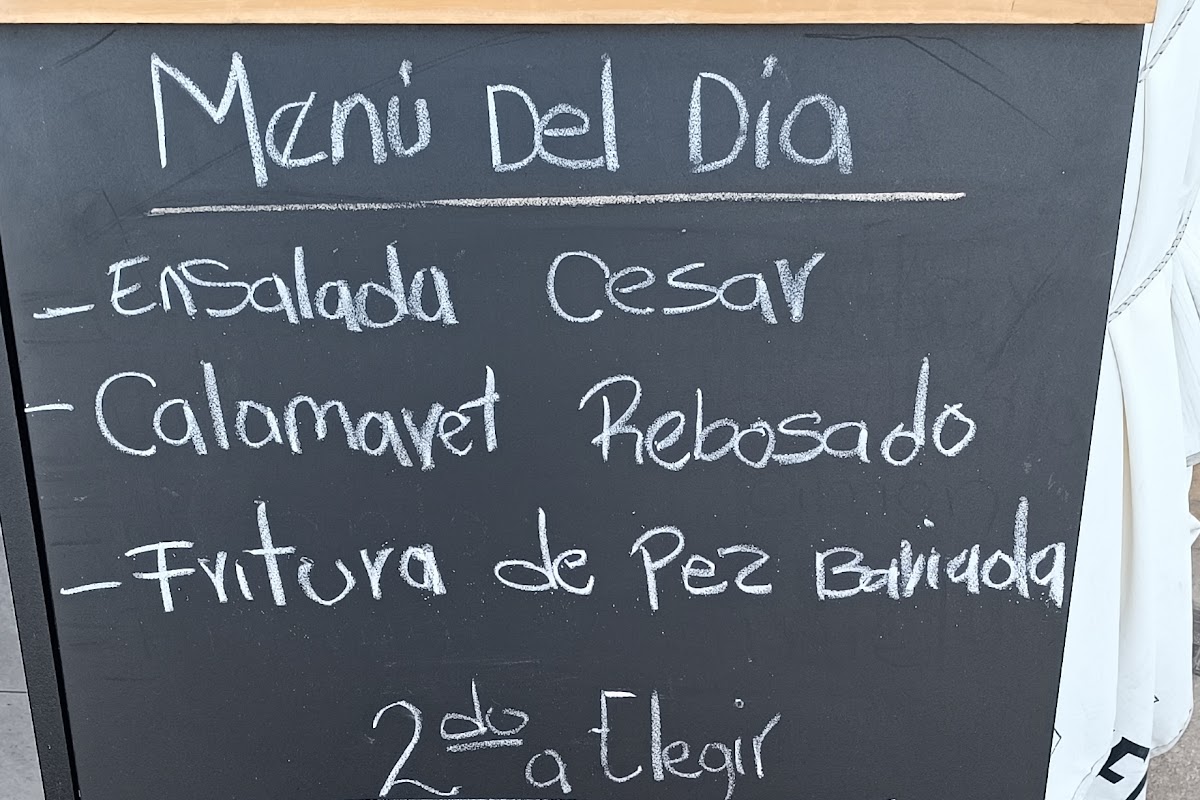 Menú Del Día
- Ensalada Cesar
- Calamaret Rebosado
- Fritura de Pez Bariada
2do a Elegir